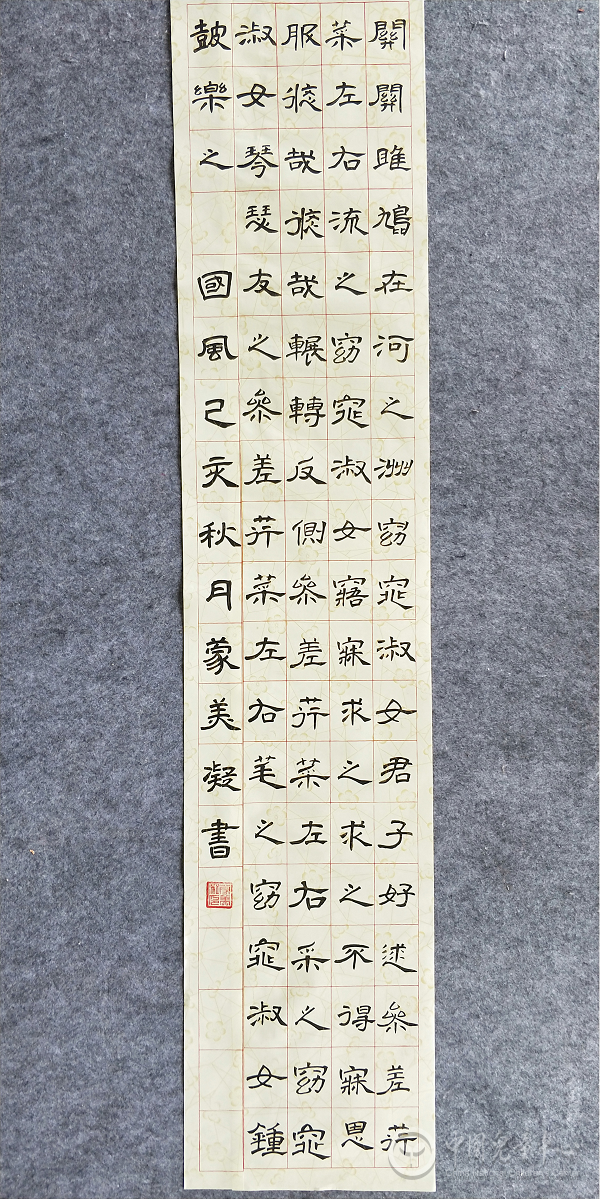 關關雎鳩在河之洲窈窕淑女君子好逑參差荇
菜左右流之窈窕淑女寤寐求之求之不得寐思
服悠哉悠哉輾轉反側參差荇菜左右采之窈窕
淑女琴瑟友之參差荇菜左右芼之窈窕淑女鍾
皷樂之 國風己亥秋月蒙美凝書